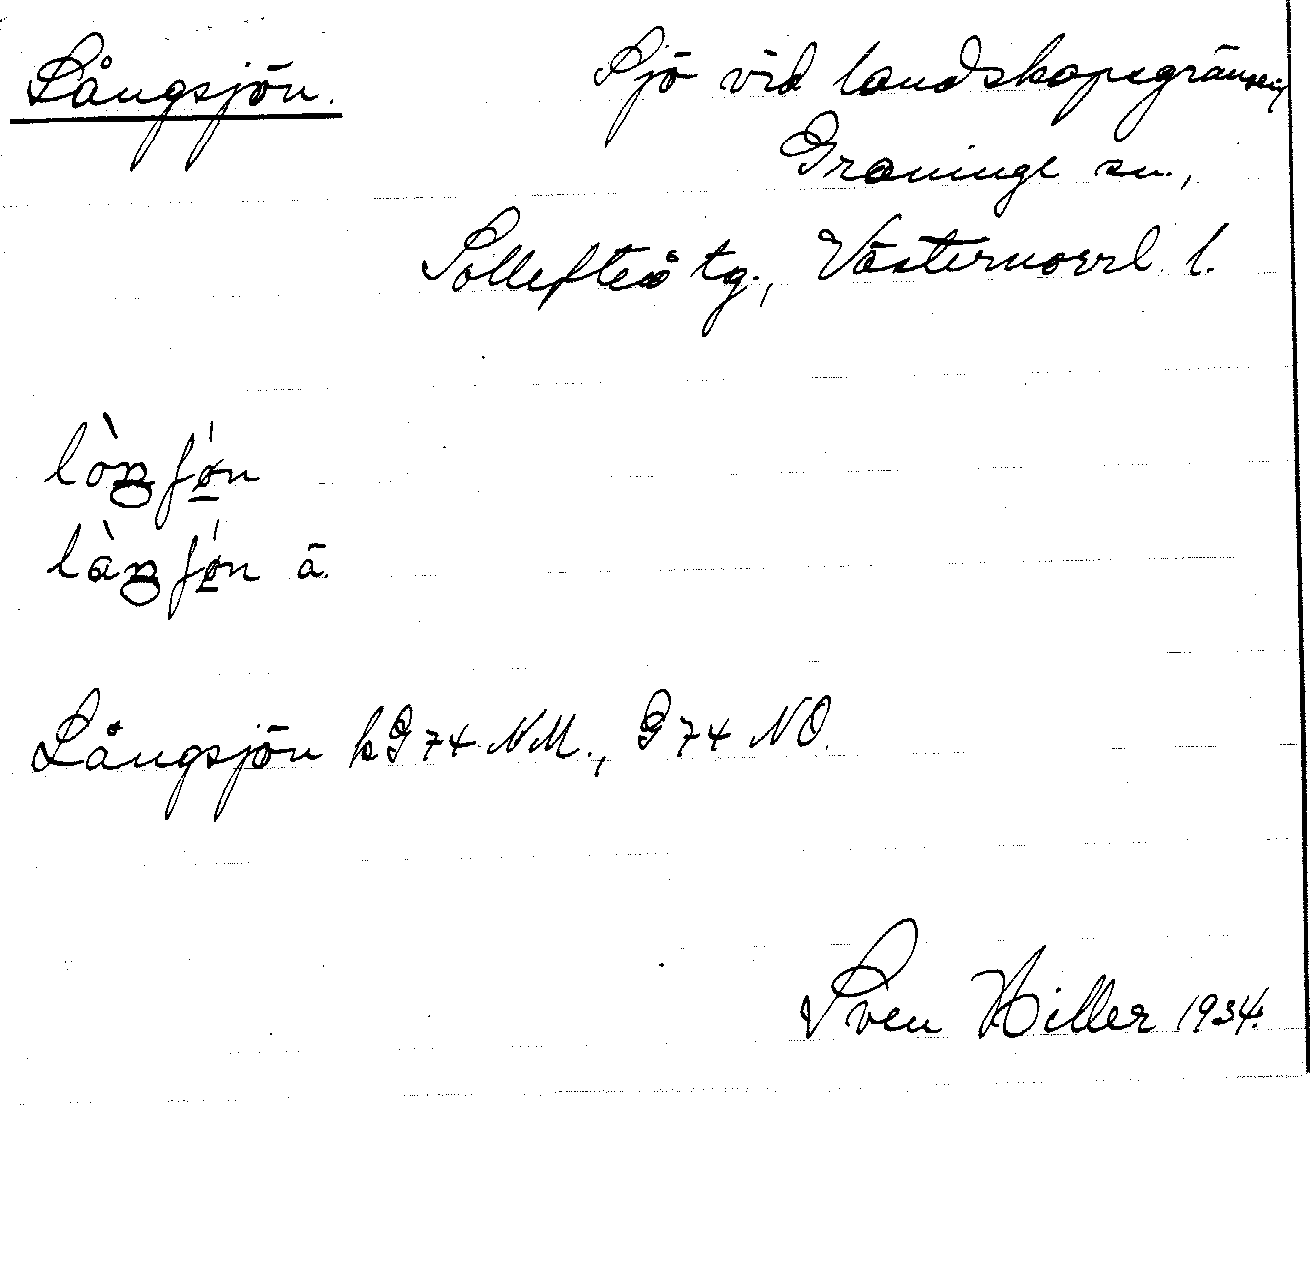 Långsjön. Sjö vid landskapsgränsen,
Graninge sn.,
Sollefteå tg., Västernorrl. l.
Långsjön kG 74 NM., G 74 NO.
Sven Hiller 1934.